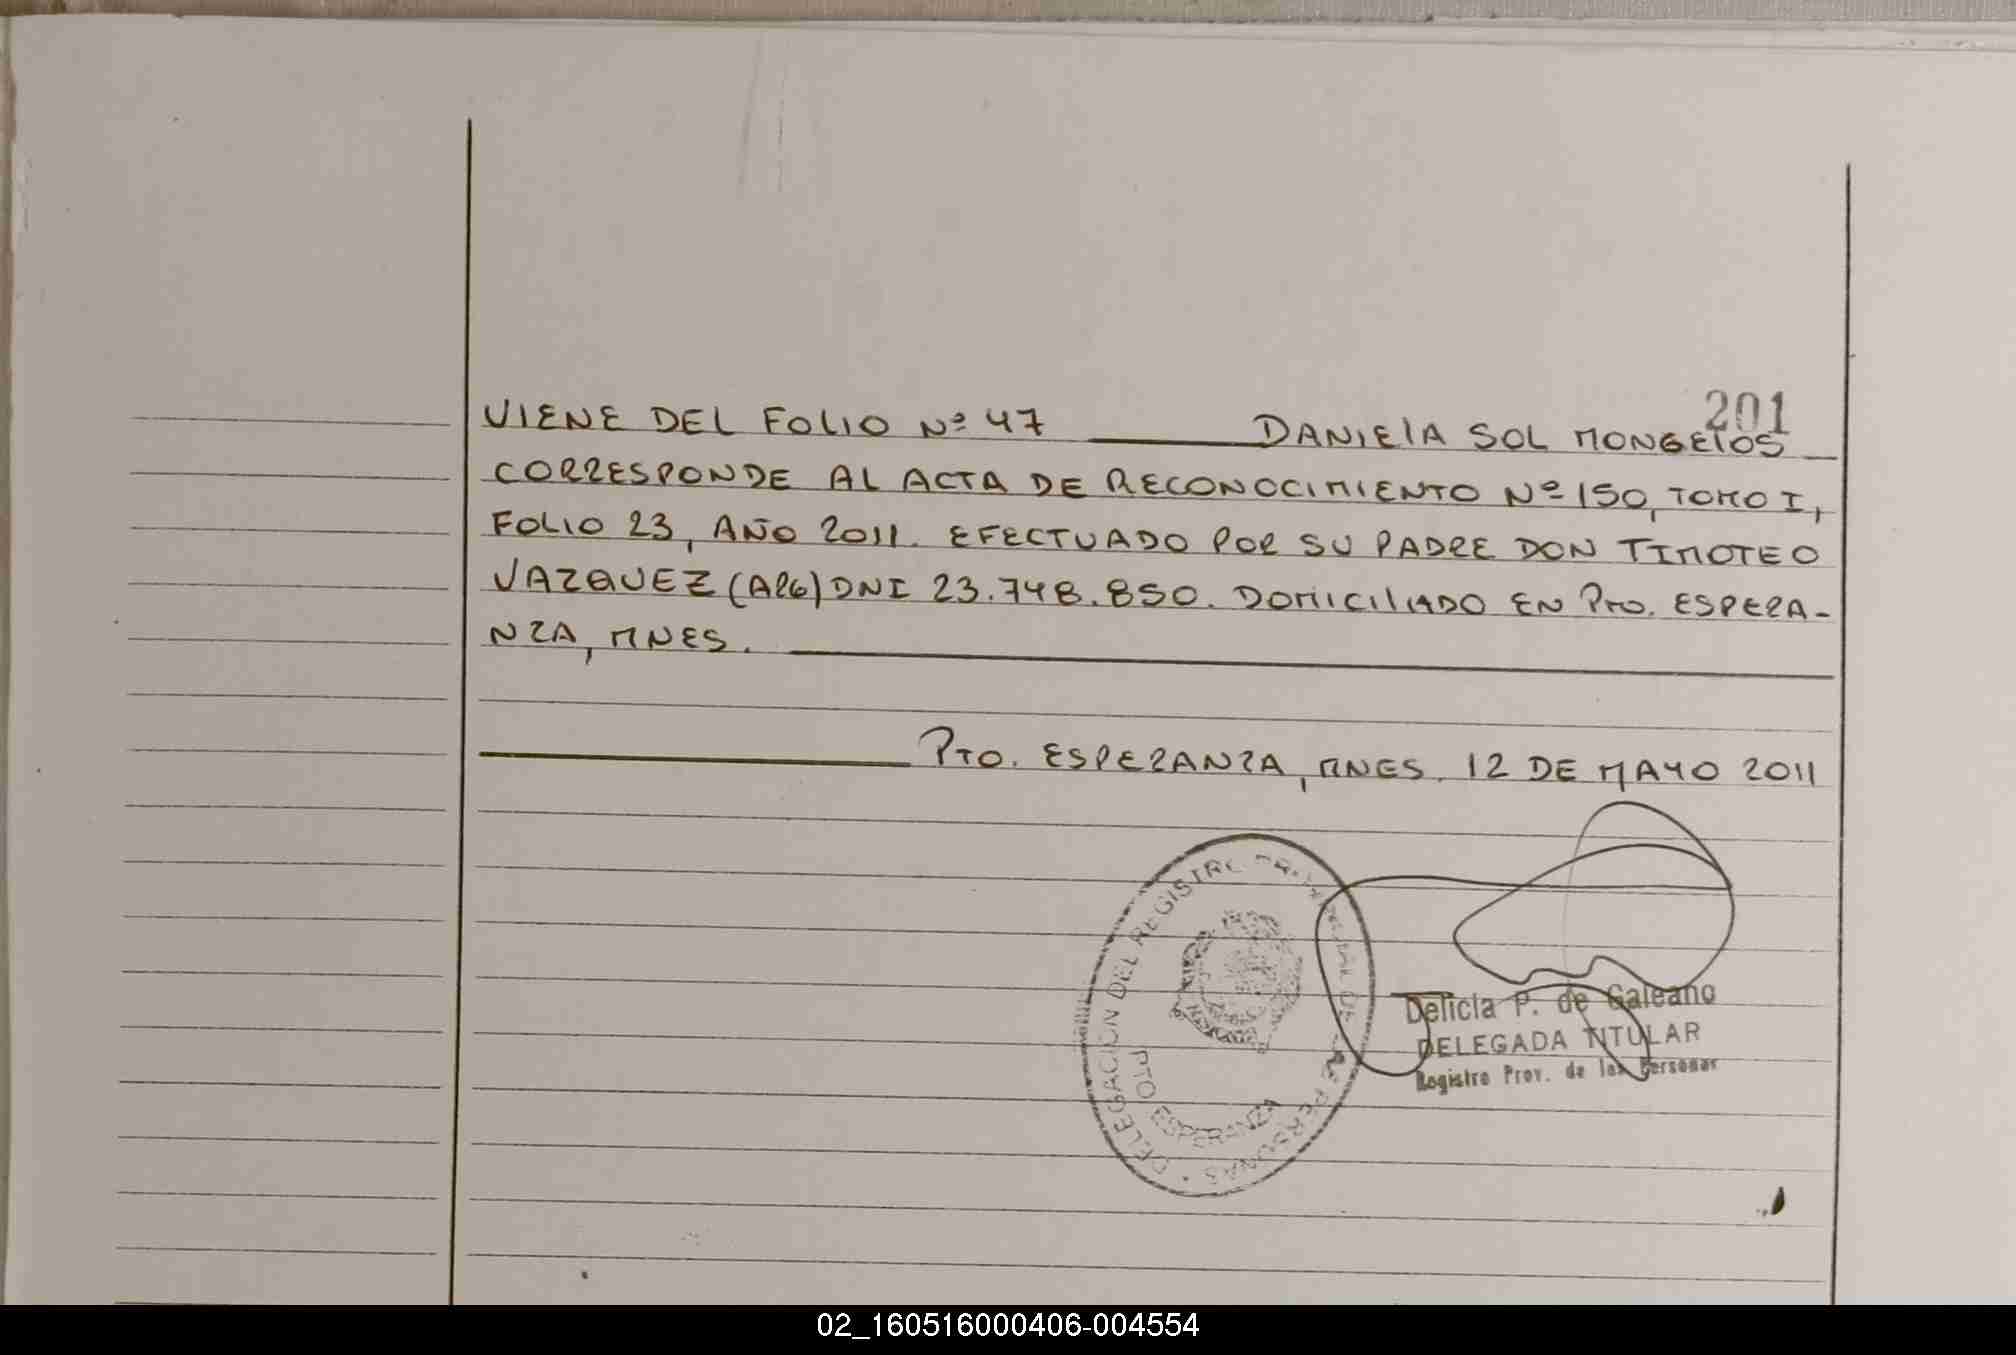 201
VIENE DEL FOLIO Nº 47 DANIELA SOL MONGELOS
CORRESPONDE AL ACTA DE RECONOCIMIENTO Nº 150, TOMO I,
FOLIO 23, AÑO 2011. EFECTUADO POR SU PADRE DON TIMOTEO
VAZQUEZ (ARG) DNI 23.748.850. DOMICILIADO EN PTO. ESPERA-
NZA, MNES.
PTO. ESPERANZA, MNES. 12 DE MAYO 2011
DELEGACION DEL REGISTRO PROVINCIAL DE LAS PERSONAS
PTO ESPERANZA
Delicia P. de Galeano
DELEGADA TITULAR
Registro Prov. de las Personas
02_160516000406-004554